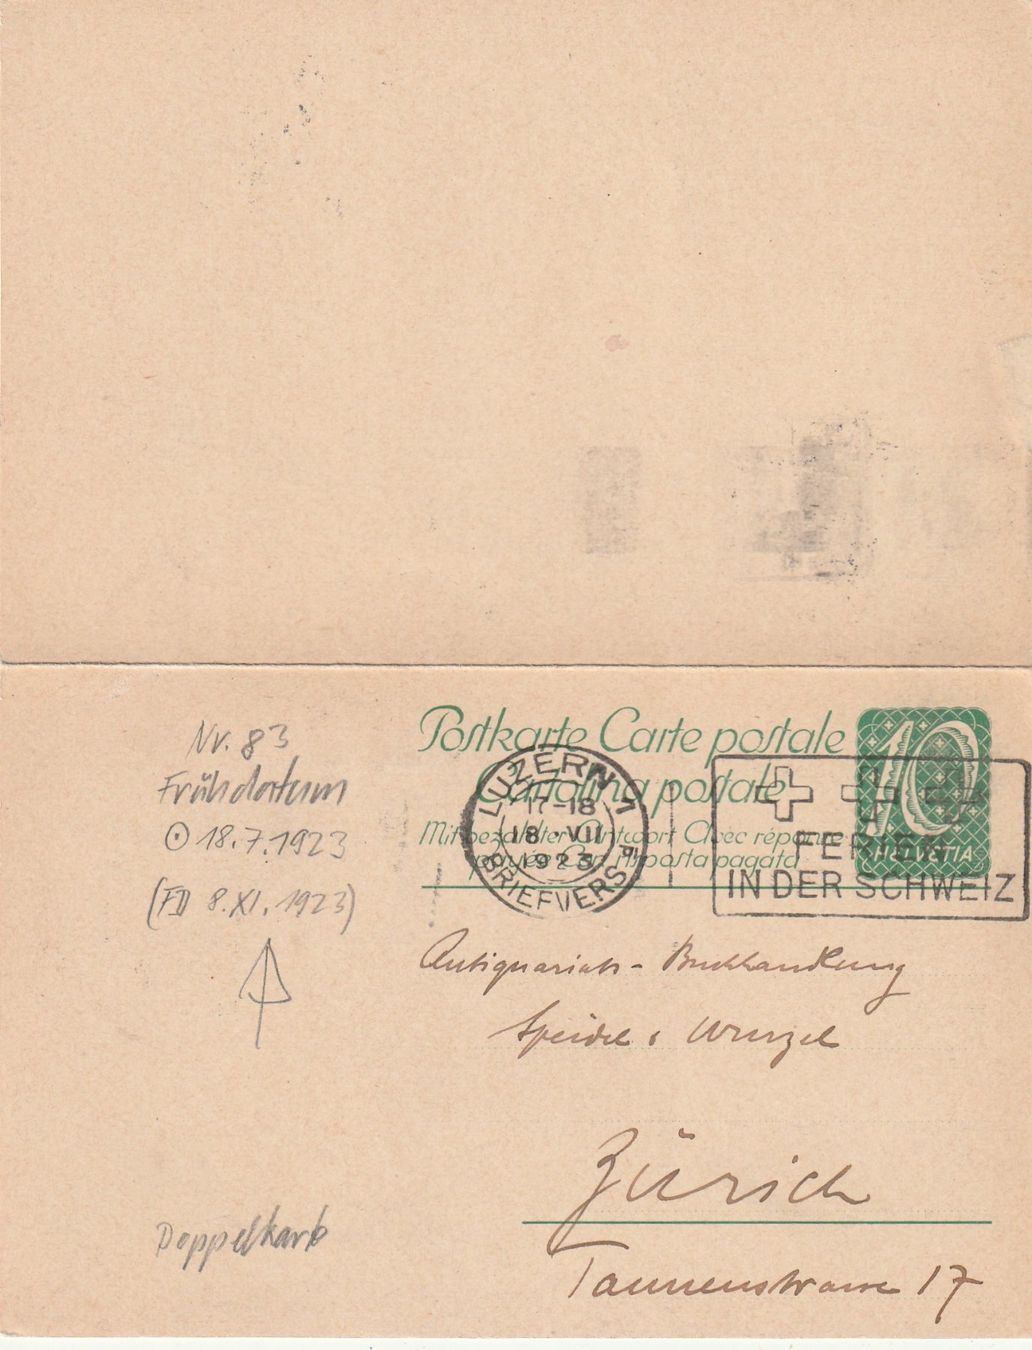 Nr. 83
Frühdatum
⊙ 18.7.1923
(FD 8.XI.1923)
Doppelkarte
Postkarte Carte postale
Cartolina postale
Mit bezahlter Antwort Avec réponse
payée Con risposta pagata
10
HELVETIA
LUZERN 1
17-18
18.VII
1923
BRIEFVERS.
FERIEN
IN DER SCHWEIZ
Antiquariats-Buchhandlung
Speidel & Wurzel
Zürich
Tannenstrasse 17